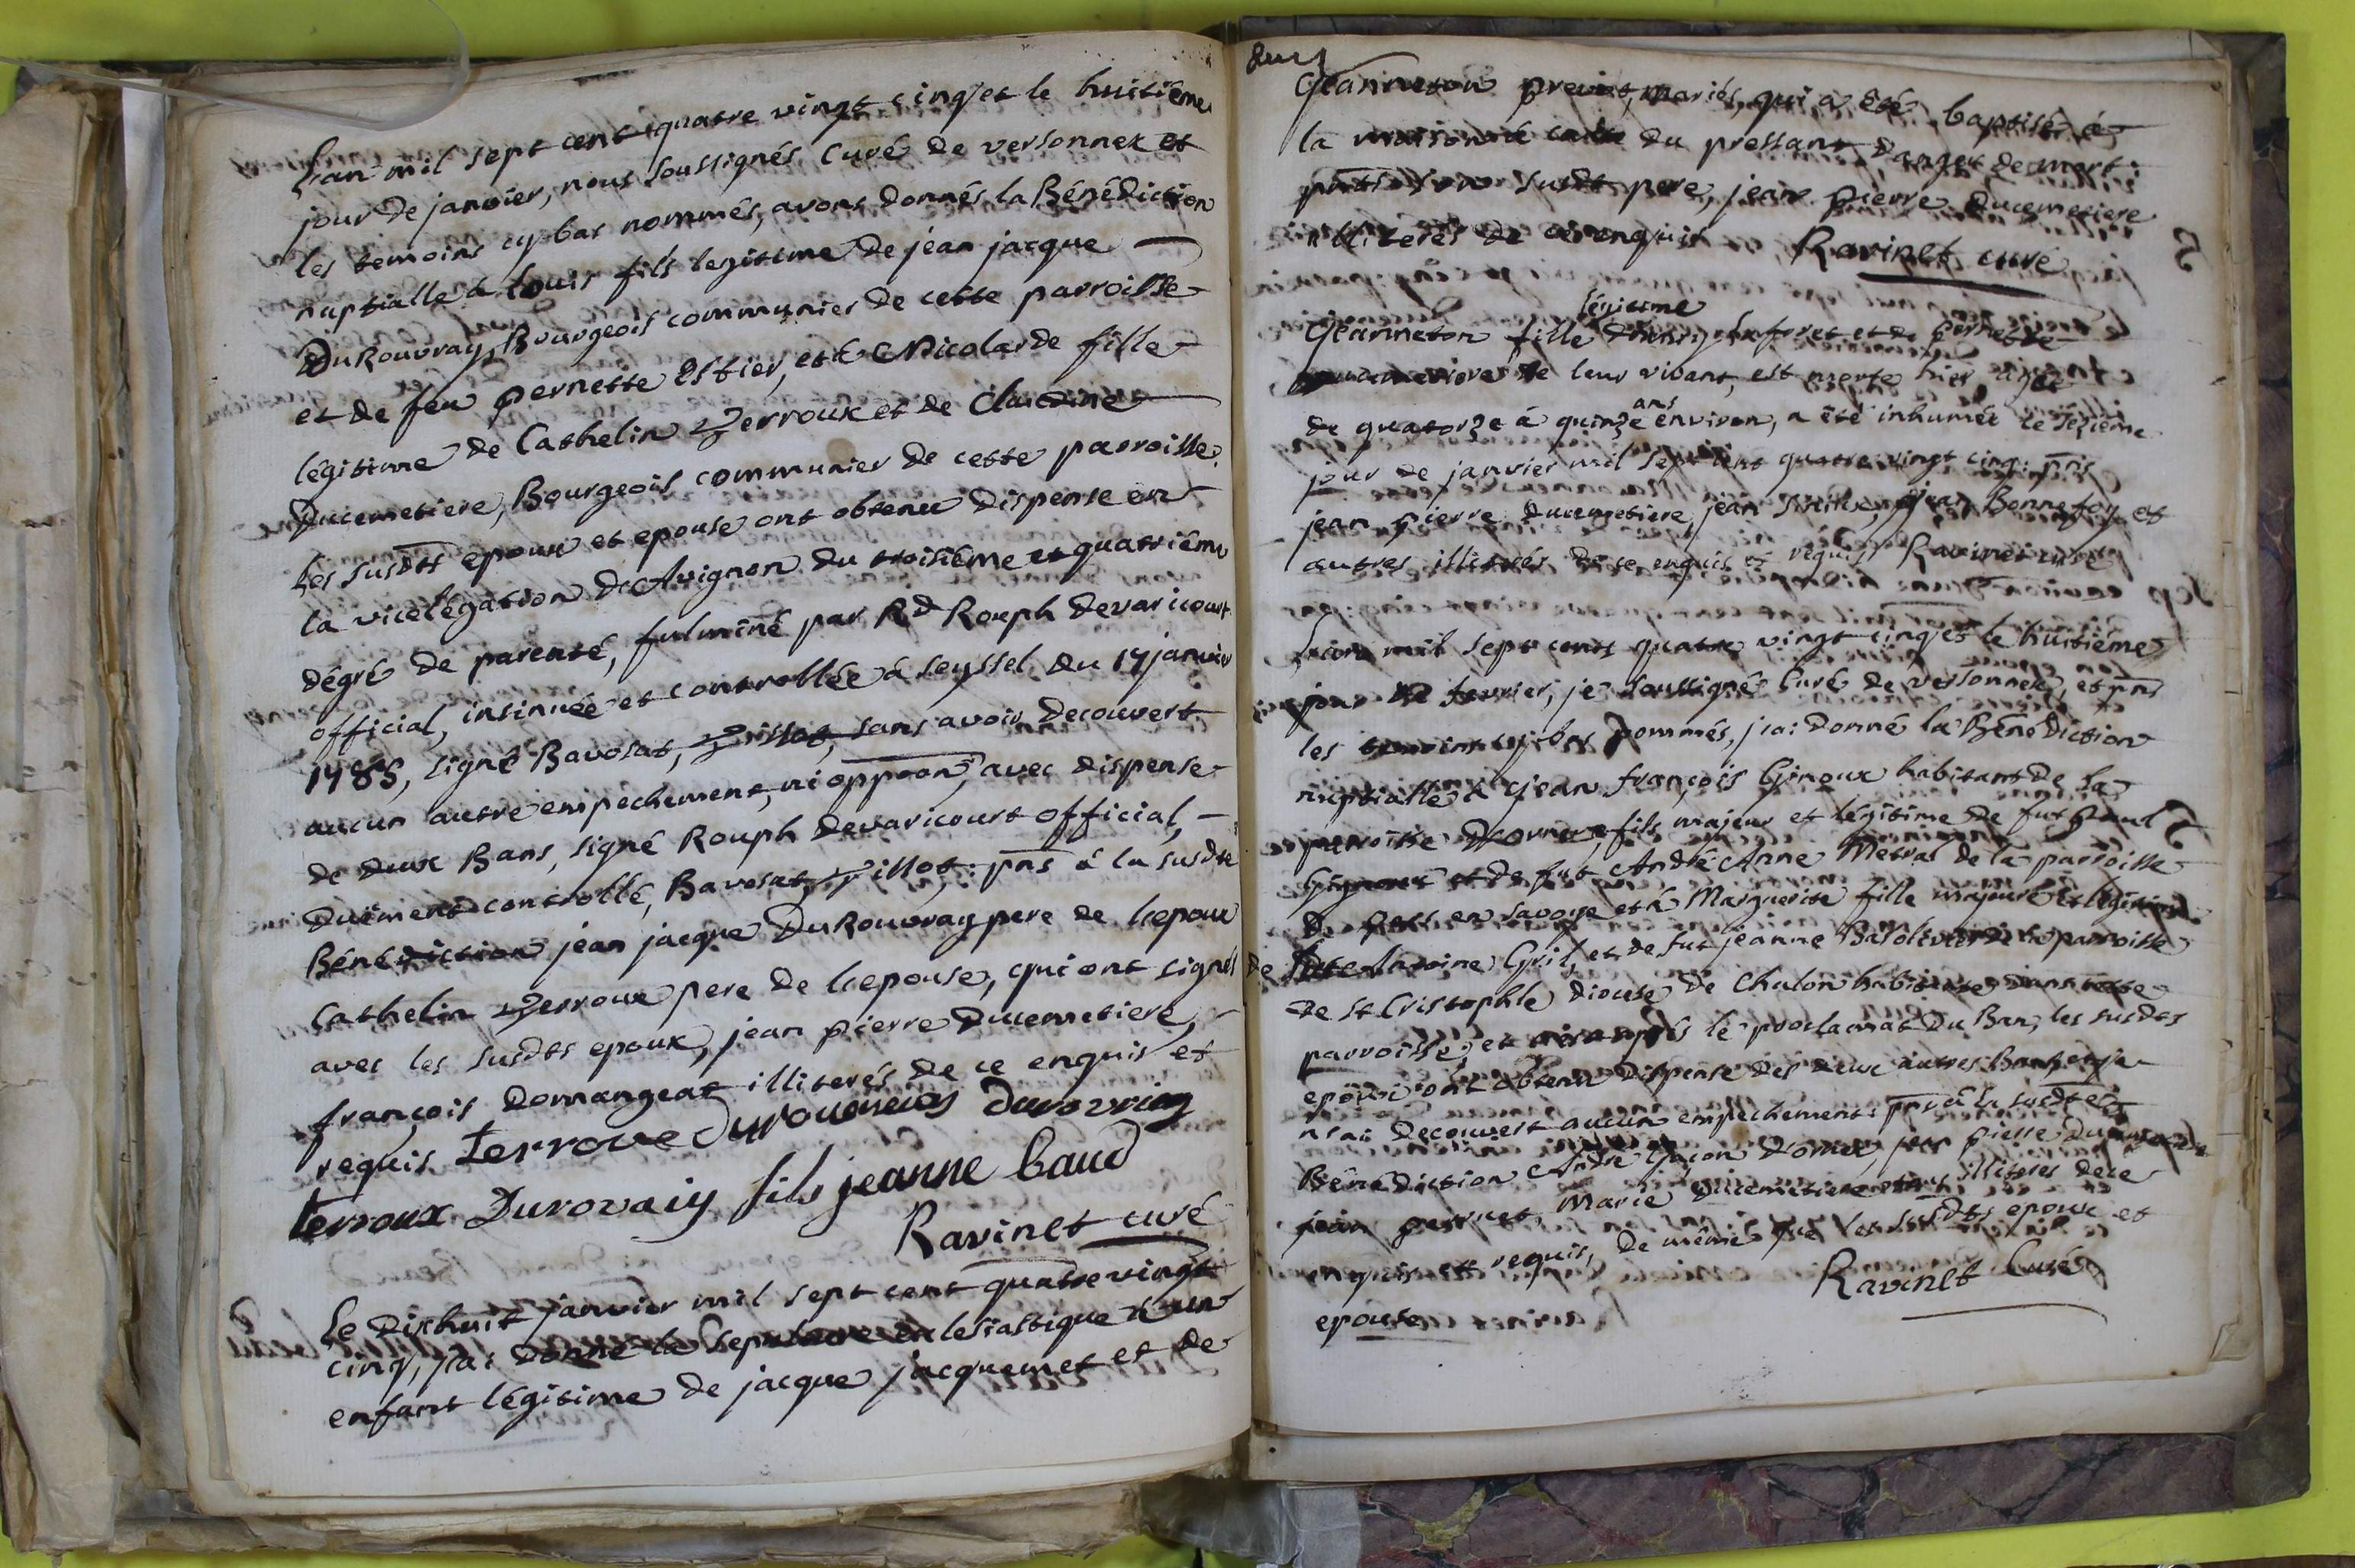 L'an mil sept cent quatre vingt cinq et le huitiême
jour de janvier, nous soussignés Curé de versonnex et
les temoins cy bas nommés, avons donnés la Bénédiction
nuptialle à Louis fils legitime de jean jacque
DuRouvray, Bourgeois communier de cette parroisse
et de feu pernette Estier, et à Nicolarde fille
légitime de Cathelin Verroux et de Claudine
Ducemetiere, Bourgeois communier de cette parroisse.
Les susdts epoux et epouse ont obtenu dispense en
la vicelégation d'Avignon du troisiême et quatriême
dégré de parenté, fulminé par Rd Rouph devaricourt
official, insinuée et controllée à seyssel du 14 janvier
1785, signé Bavosat, Pillot, sans avoir decouvert
aucun autre empechement, ni oppoon, avec dispense
de deux Bans, signé Rouph devaricourt official,
duëment controllé, Bavosat, Pillot: pns à la susdte
Bénédiction jean jacque DuRouvray pere de l'epoux
Cathelin Verroux pere de l'epouse, qui ont signés
avec les susdts epoux, jean pierre Ducemetiere,
françois Domangeat illiterés de ce enquis et
requis. terroux Durouvray
terroux Durovaiy fils jeanne baud
Ravinet curé
Le dixhuit janvier mil sept cent quatre vingt
cinq, j'ai donné la sepulture eclesiastique à un
enfant légitime de jacque jacquemet et de
Jeanneton prevot, mariés, qui a été baptisé à
la maison à cause du pressant danger de mort
pnt son susdt pere, jean pierre Ducemetiere
illiterés de ce enquis Ravinet curé
légitime
Jeanneton fille et de pernette
Ducemetiere de leur vivant, est morte hier agée
ans
de quatorze à quinze environ, a été inhumée le sezieme
jour de janvier mil sept cent quatre vingt cinq: pns
jean pierre Ducemetiere, jean jean Bonnefoy et
autres illiterés de ce enquis et requis Ravinet curé
L'an mil sept cent quatre vingt cinq et le huitiême
jour de fevrier, je soussigné Curé de versonnex, et pns
les temoins cy bas nommés, j'ai donné la Bénédiction
nuptialle à jean françois Ginoux habitant de la
parroisse d'ornex, fils majeur et légitime de fut
et de fut André Anne Metral de la parroisse
de en savoye et à Marguerite fille majeure et légitime
de Antoine Gril, et de fut jeanne de la parroisse
de St Cristophle diocése de Chalon habitante dans cette
parroisse; et après le proclamat du Ban, les susdts
epoux ont obtenu dispense des deux autres Bans, et je
n'ai decouvert aucun empechement: pns à la susdte
Bénédiction André d'ornex, jean pierre
jean perruet, Marie Ducemetiere illiteres de ce
enquis et requis, de même que les susdts epoux et
epouse Ravinet Curé